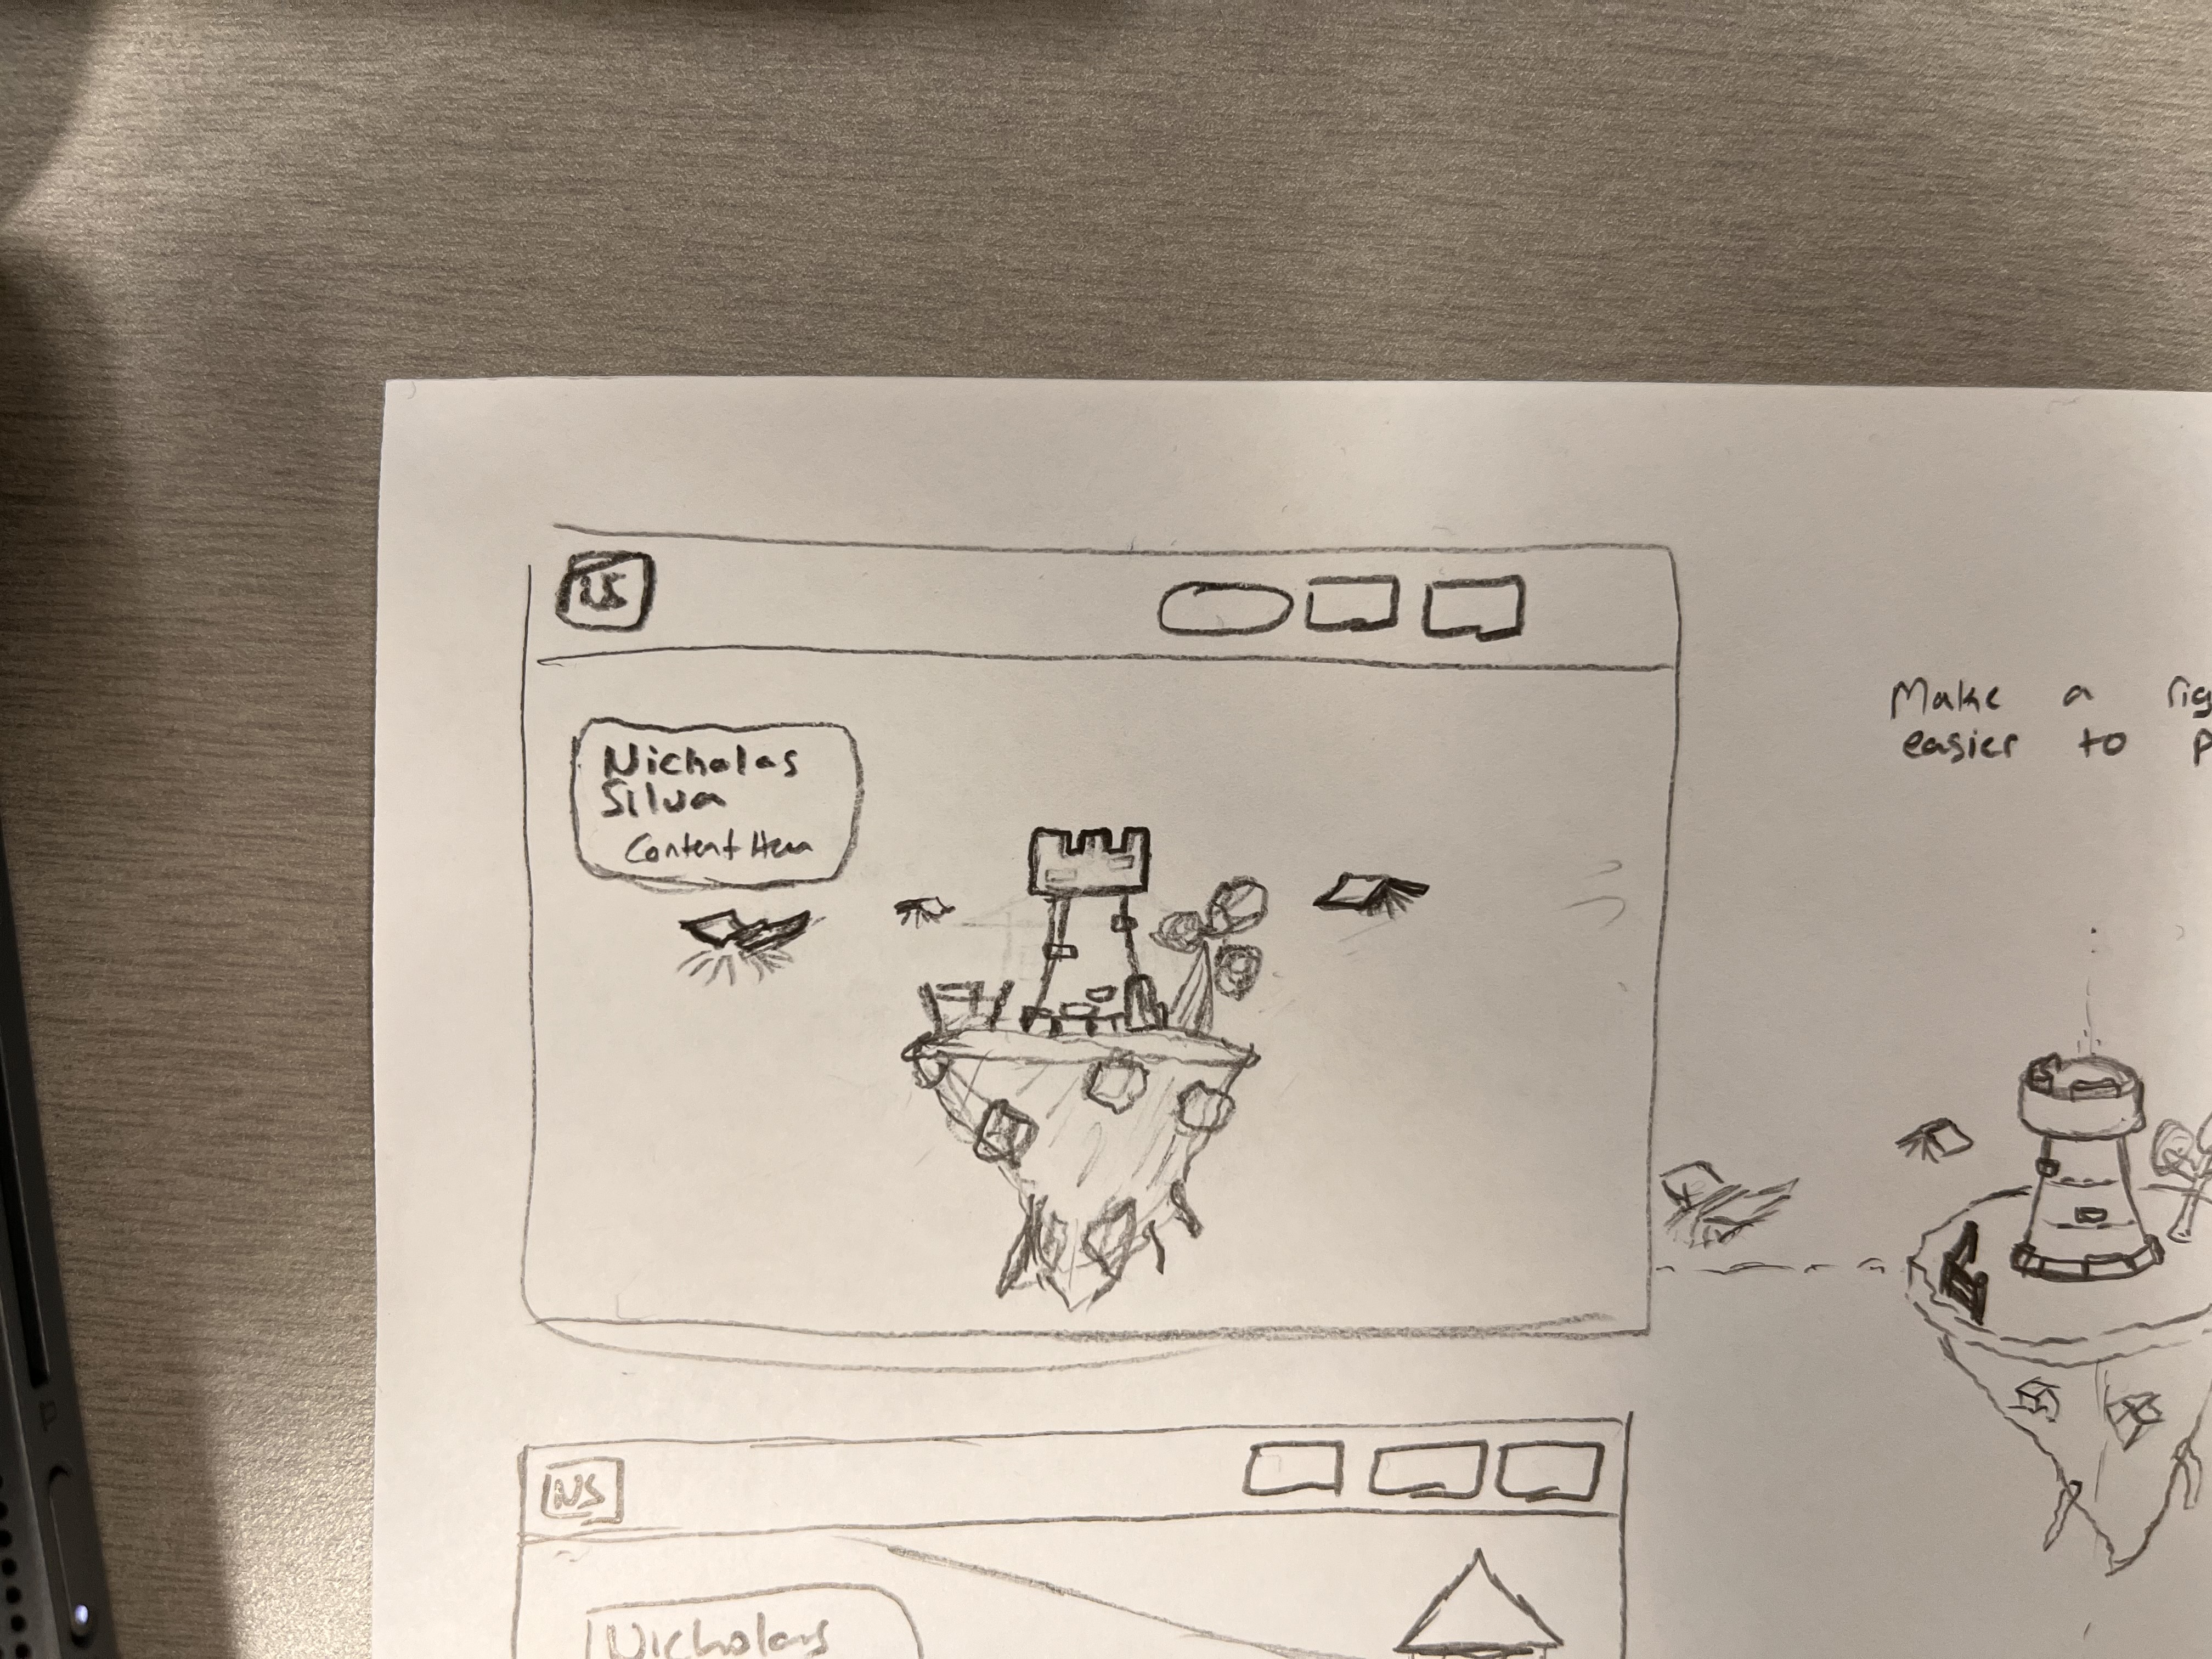 NS
Nicholas
Silva
Content Here
Make a rig
easier to p
NS
Nicholas